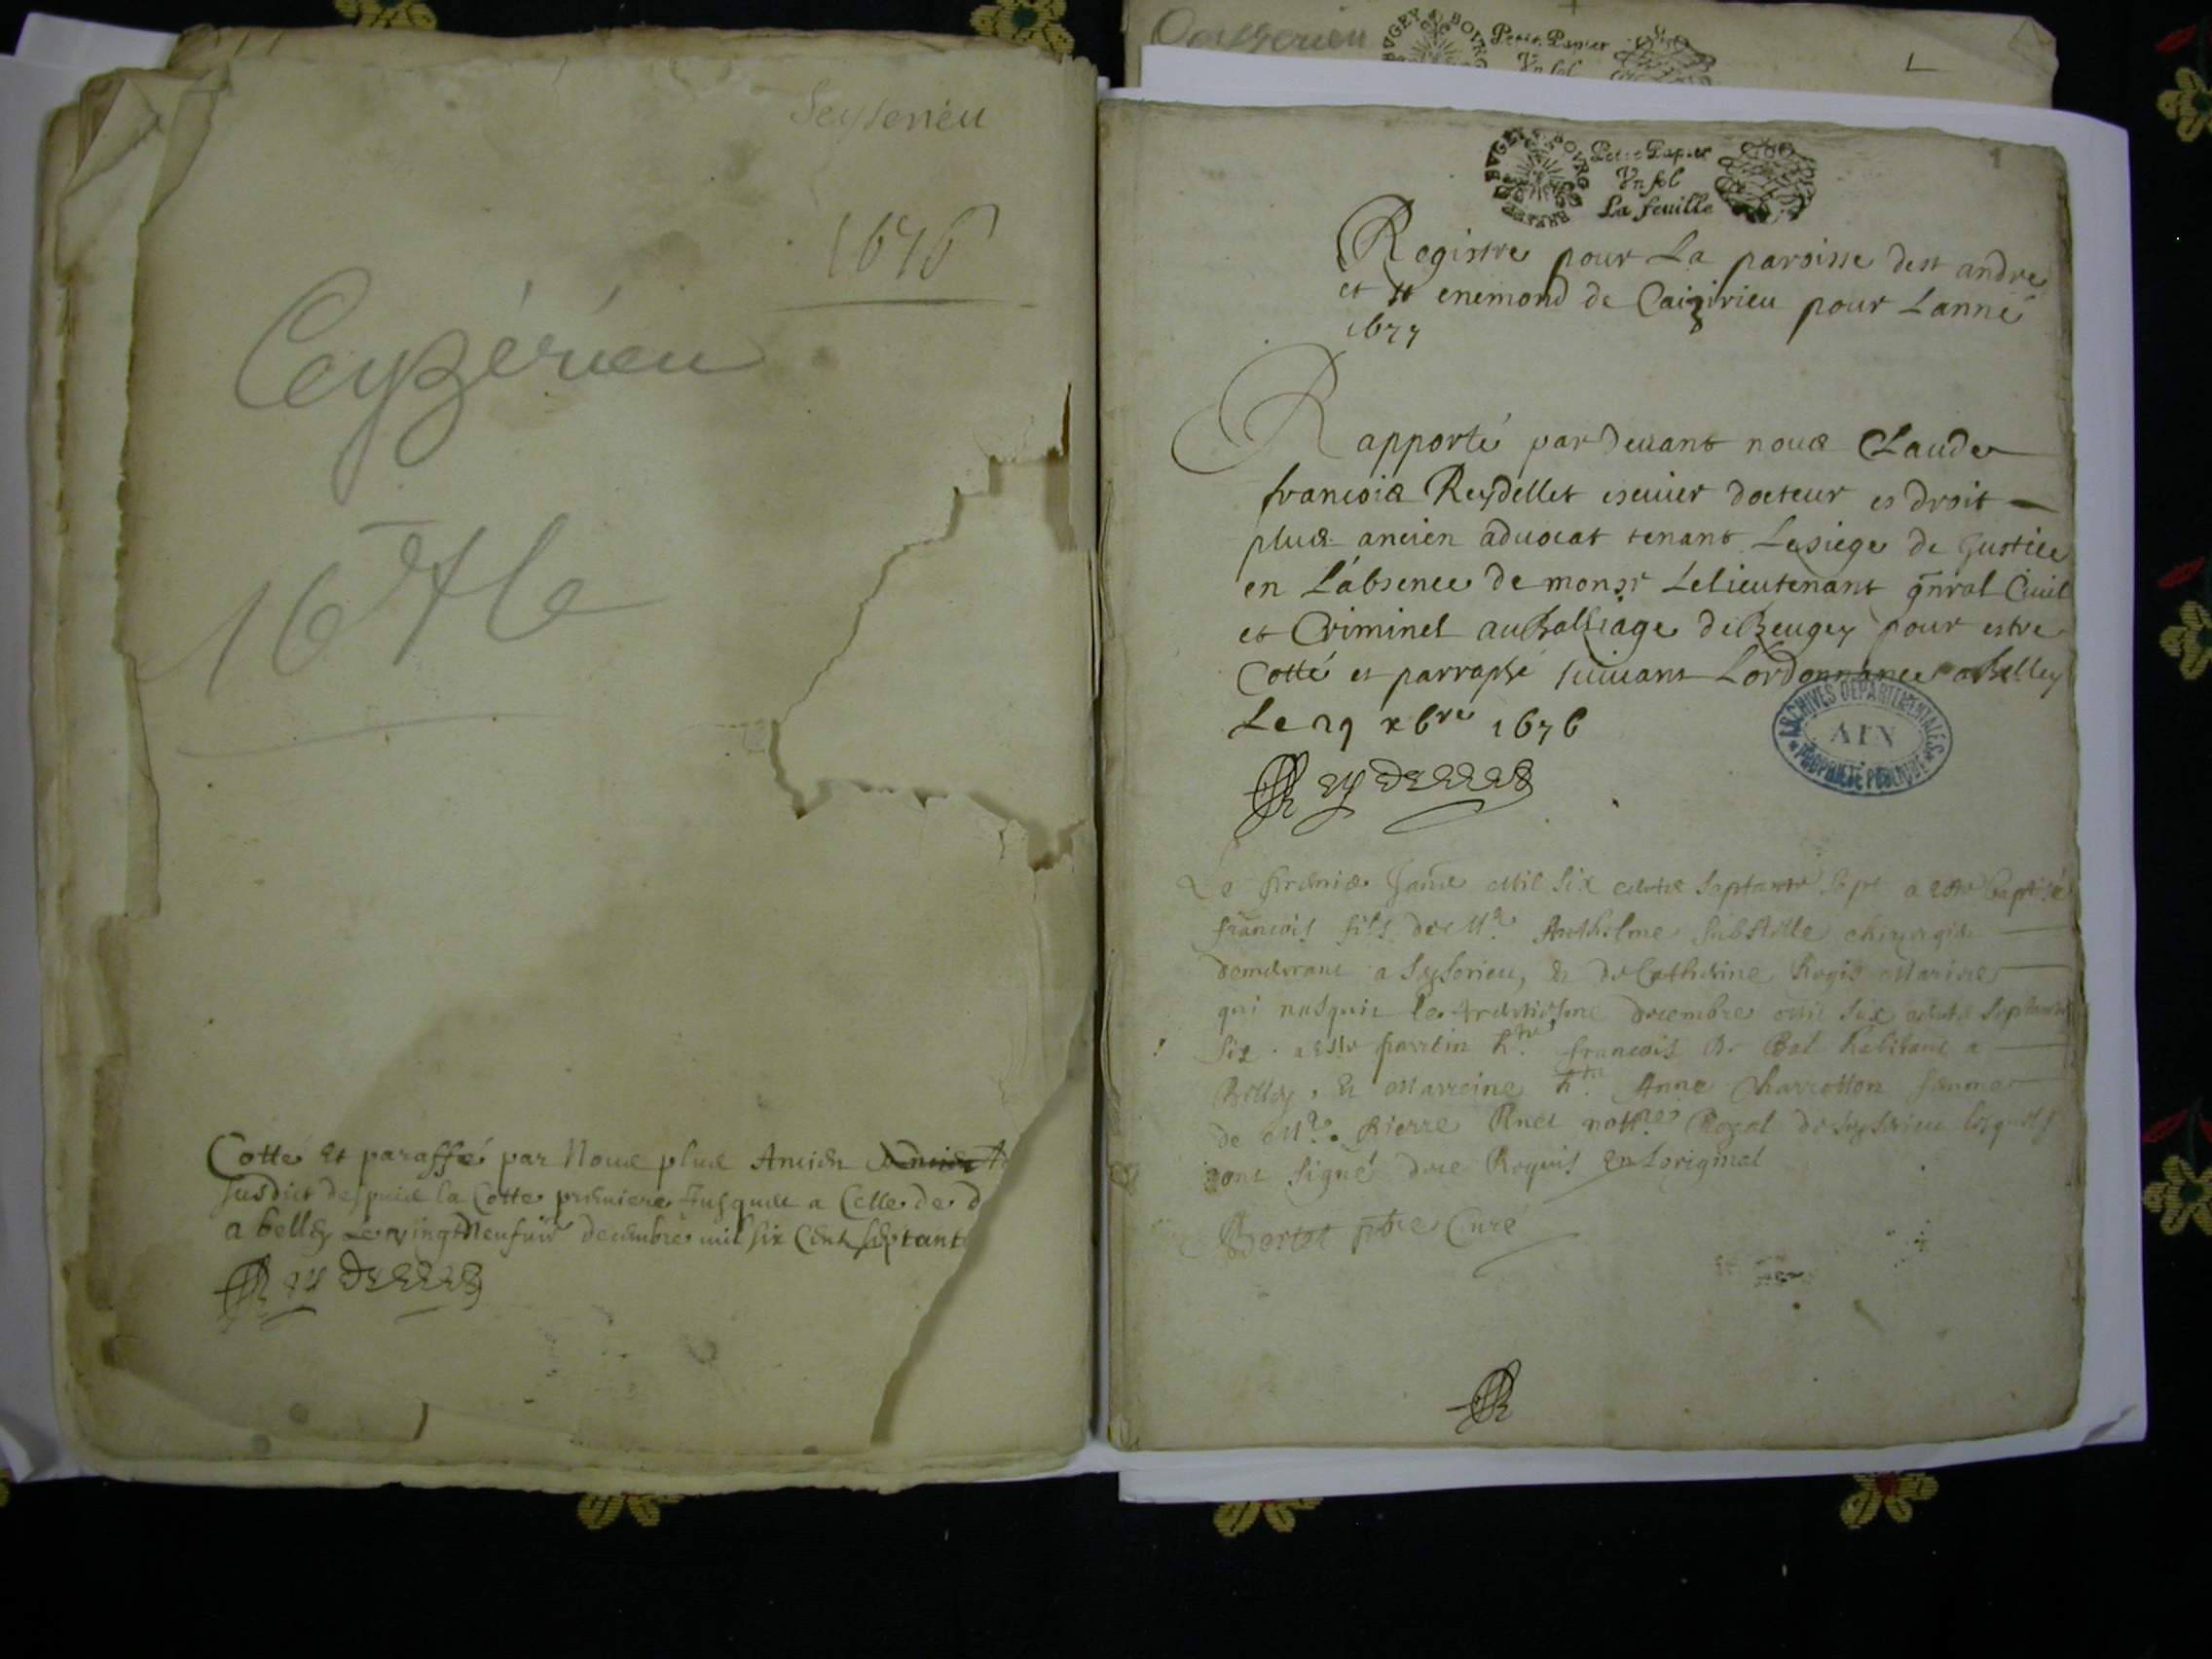 Seyserieu
1676
Ceyzérieu
1676
Cotté et paraffé par Nous plus Ancien
susdict despuis la Cotte premiere Jusques a Celle de d
a belley Le vingt Neufvie decembre mil six Cent septant
Reydellet
BVGEY BOVRG
Petit Papier
Vn sol
BVGEY BOVRG
Petit Papier
Vn sol
La feuille
1
Registre pour La paroisse de st andre
et st enemond de Caizirieu pour Lanné
1677
Rapporté par devant nous Claude
francois Reydellet escuier docteur es droit
plus ancien advocat tenant Le siege de Justice
en L'absence de monsr Le lieutenant gnral Civil
et Criminel au Balliage de Beugey pour estre
Cotté et parraphé suivant Lordonnance a belley
Le 29 xbre 1676
ARCHIVES DEPARTEMENTALES
AIN
PROPRIETE PUBLIQUE
Reydellet
Le premie Janvie Mil six cents septante sept a este baptisé
francois fils de Mr Anthelme Substille chirurgien
demeurant a Seyserieu, et de Catherine Rogis Mariés
qui nasquit le decembre Mil six cents septante
six a este parrin francois De Bal habitant a
Belley, et Marreine Anne Charrotton femme
de Mre Pierre notre Royal de Seyserieu lesquels
ont signé de ce Requis en Loriginal
Bertet pbre Curé